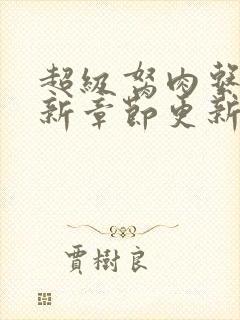 超級肉
新章節更新
賈樹良